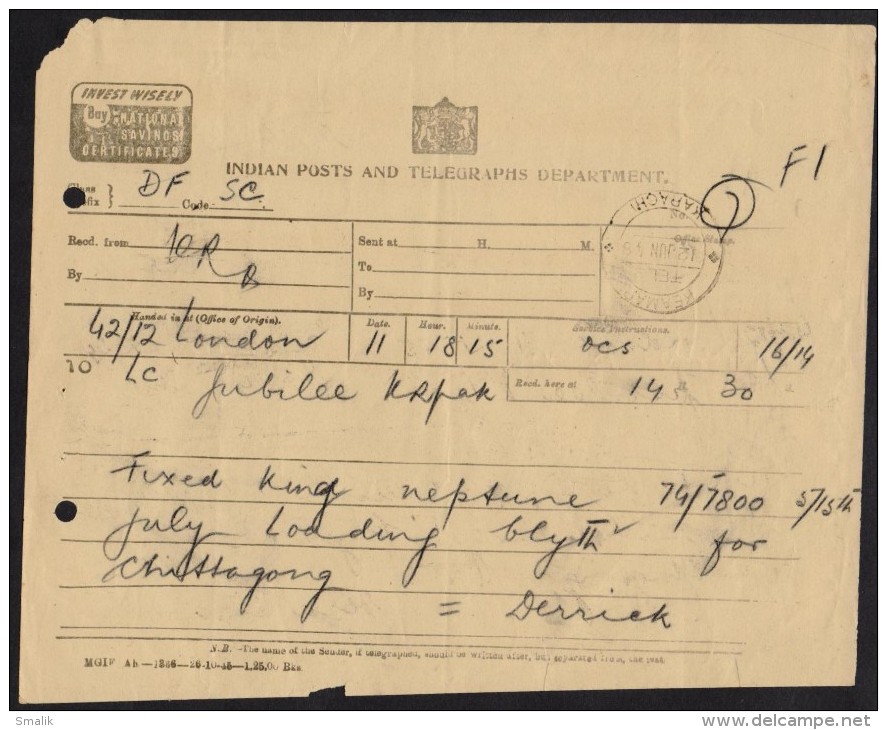 INVEST WISELY
Buy NATIONAL
SAVINGS
CERTIFICATES
INDIAN POSTS AND TELEGRAPHS DEPARTMENT.
F1
DF Code SC.
KARACHI
Office Stamp.
12 JUN 48
KEAMARI
Recd. from
By
Sent at H. M.
To
By
Handed in at (Office of Origin). Date. Hour. Minute. Service Instructions.
42/12 London 11 18 15 OCS 16/14
TO LC Jubilee Krpak
Recd. here at 14 H 30
Fixed King neptune 74/7800 5/15th
July Loading blyth for
Chittagong
= Derrick
N.B.—The name of the Sender, if telegraphed, should be written after, but separated from, the text.
MGIF Ah—1366—26-10-45—1,25,00 Bks.
Smalik
www.delcampe.net